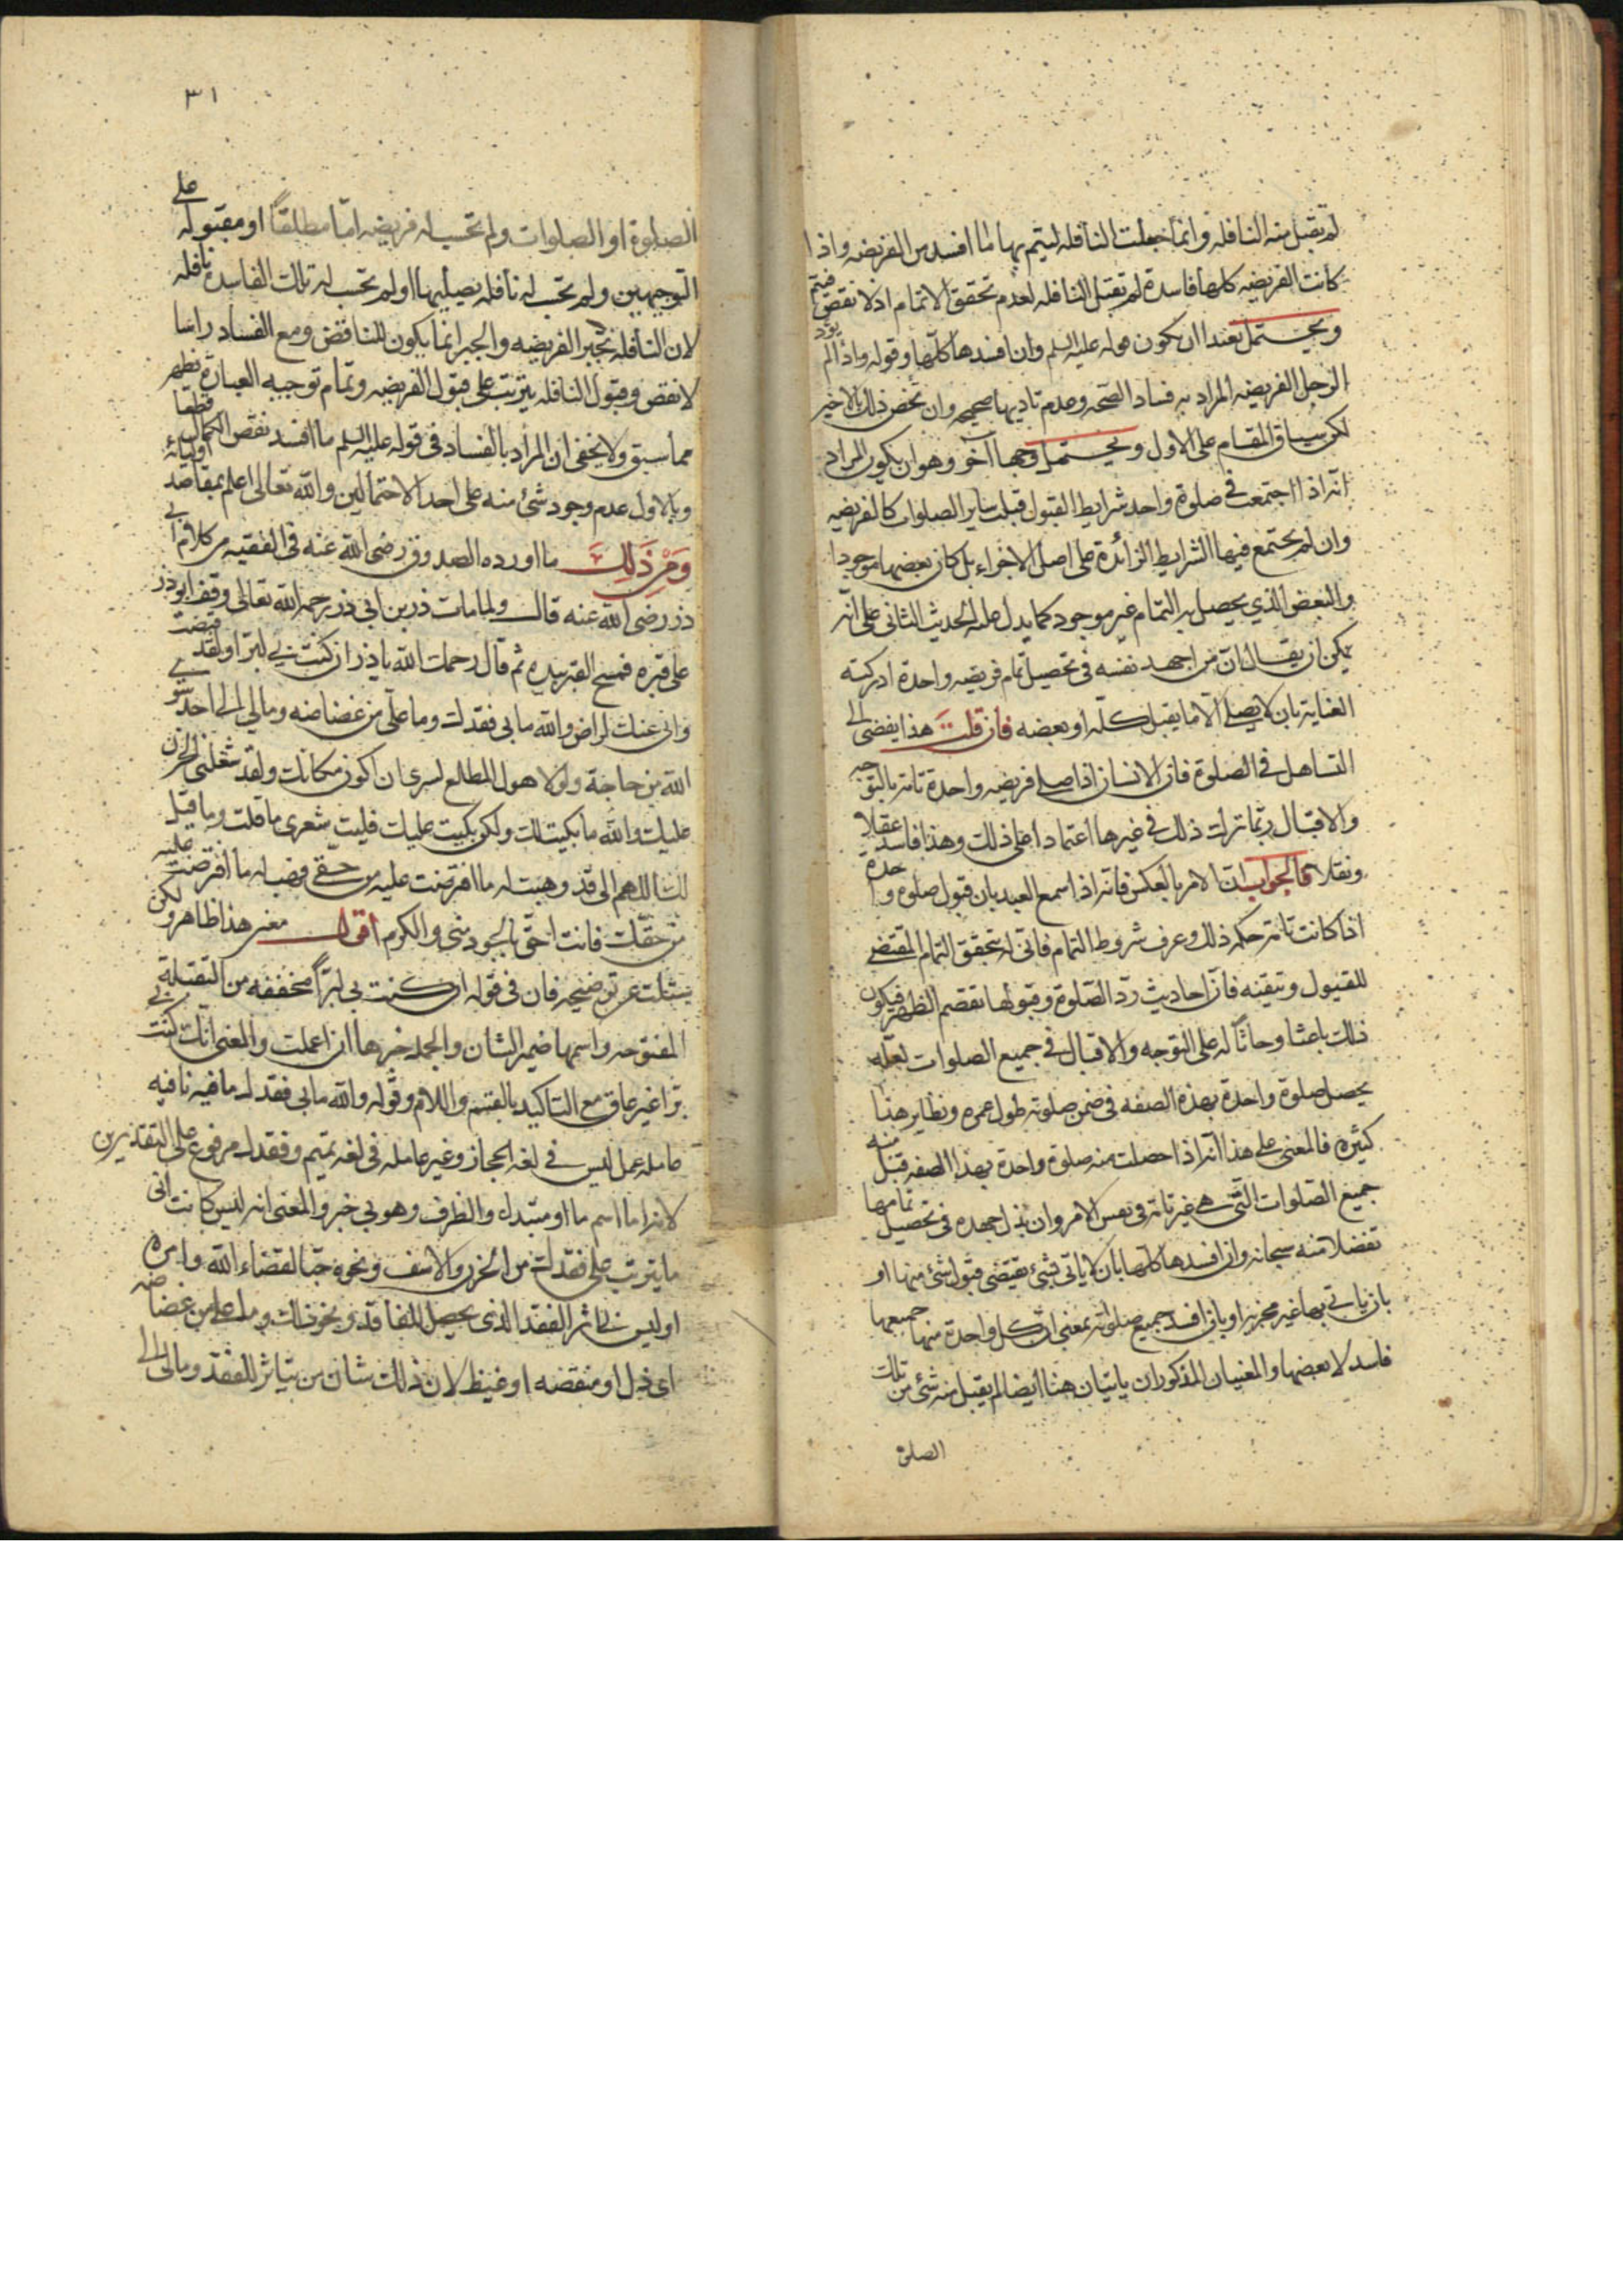 لم تقبل منه النافله وانما جعلت النافله ليتم بها ما افسد من الفريضه واذا
كانت الفريضه كلها فاسدة لم تقبل النافله لعدم تحقق الاتمام اذ لا نقص فيتم
ويحتمل بعيدا ان يكون قوله عليه السلم وان افسدها كلها وقوله واذا لم يؤد
الرجل الفريضه المراد به فساد الصحه وعدم تاديها صحيحه وان تخص ذلك بالاخير
لكن سياق المقام على الاول ويحتمل وجها آخر وهو ان يكون المراد
انه اذا اجتمعت في صلوة واحد شرايط القبول قبلت ساير الصلوات كالفريضه
وان لم يجتمع فيها الشرايط الزائدة على اصل الاجزاء بل كان بعضها موجودا
والبعض الذي يحصل به التمام غير موجود كما يدل عليه الحديث الثاني على انه
يمكن ان يقال ان من اجهد نفسه في تحصيل تمام فريضه واحدة ادركته
العناية بان لا يصلي الا ما يقبل كله او بعضه فان قلت هذا يفضى الى
التساهل في الصلوة فان الانسان اذا صلى فريضه واحدة تامة بالتوجه
والاقبال ربما ترك ذلك في غيرها اعتمادا على ذلك وهذا فاسد عقلا
ونقلا فالجواب ان الامر بالعكس فانه اذا سمع العبد بان قبول صلوة واحدة
اذا كانت تامة حكمه ذلك وعرف شروط التمام فانى له بتحقق التمام المقتضى
للقبول وتيقنه فان احاديث رد الصلوة وقبولها تقصم الظهر فيكون
ذلك باعثا وحاثا له على التوجه والاقبال في جميع الصلوات لعله
يحصل صلوة واحدة بهذه الصفه في ضمن صلوته طول عمره ونظاير هذا
كثيره فالمعنى على هذا انه اذا حصلت منه صلوة واحدة بهذا الصفه قبل منه
جميع الصلوات التي هي غير تامة في نفس الامر وان بذل جهده في تحصيل تمامها
تفضلا منه سبحانه وان افسدها كلها بان لا ياتى بشئ يقتضى قبول شئ منها او
بان ياتي بها غير مجزية او بان افسد جميع صلوته بمعنى ان كل واحدة منها جميعها
فاسد لا بعضها والمعنيان المذكوران ياتيان هنا ايضا لم يقبل منه شئ من تلك
الصلوة
٣١
الصلوة او الصلوات ولم تحسب له فريضه اما مطلقا او مقبوله على
التوجيهين ولم تحسب له نافله يصليها او لم تحسب له تلك الفاسدة نافله
لان النافله تجبر الفريضه والجبر انما يكون للناقض ومع الفساد راسا
لا نقص وقبول النافله يترتب على قبول الفريضه وتمام توجيه العبارة يظهر
مما سبق ولا يخفى ان المراد بالفساد في قوله عليه السلم ما افسد نقص الكمال قطعا
وبالاول عدم وجود شئ منه على احد الاحتمالين والله تعالى اعلم بمقاصد اوليائه
ومن ذلك ما اورده الصدوق رضى الله عنه في الفقيه من كلام ابى
ذر رضى الله عنه قال ولما مات ذر بن ابى ذر رحمه الله تعالى وقف ابوذر
على قبره فمسح القبر بيده ثم قال رحمك الله ياذر ان كنت بي لبرا ولقد قبضت
وانى عنك لراض والله ما بى فقدك وما على من غضاضه وما لي الى احد سوى
الله من حاجة ولولا هول المطلع لسرى ان اكون مكانك ولقد شغلنى الحزن
عليك والله ما بكيت لك ولكن بكيت عليك فليت شعرى ما قلت وما قيل
لك اللهم انى قد وهبت له ما افترضت عليه من حقى فهب له ما افترضت عليه
من حقك فانت احق بالجود منى والكرم اقول معنى هذا ظاهر ولكن
المفتوحه واسمها ضمير الشان والجمله خبرها ان اعملت والمعنى انك كنت بي
برا غير عاق مع التاكيد بالقسم واللام وقوله والله ما بى فقدك ما فيه نافيه
عامله عمل ليس في لغه الحجاز وغير عامله في لغه تميم وفقدك مرفوع على التقديرين
لانه اما اسم ما او مبتدل والظرف وهو بى خبر والمعنى انه ليس كآبتى
ما يترتب على فقدك من الحزن والاسف ونحوه حبا لقضاء الله وامره
او ليس بى تاثر الفقد الذى يحصل للفاقد ونحو ذلك وما على من غضاضه
اى ذل او منقصه او غيظ لان ذلك شان من يتاثر للفقد ومالى الى